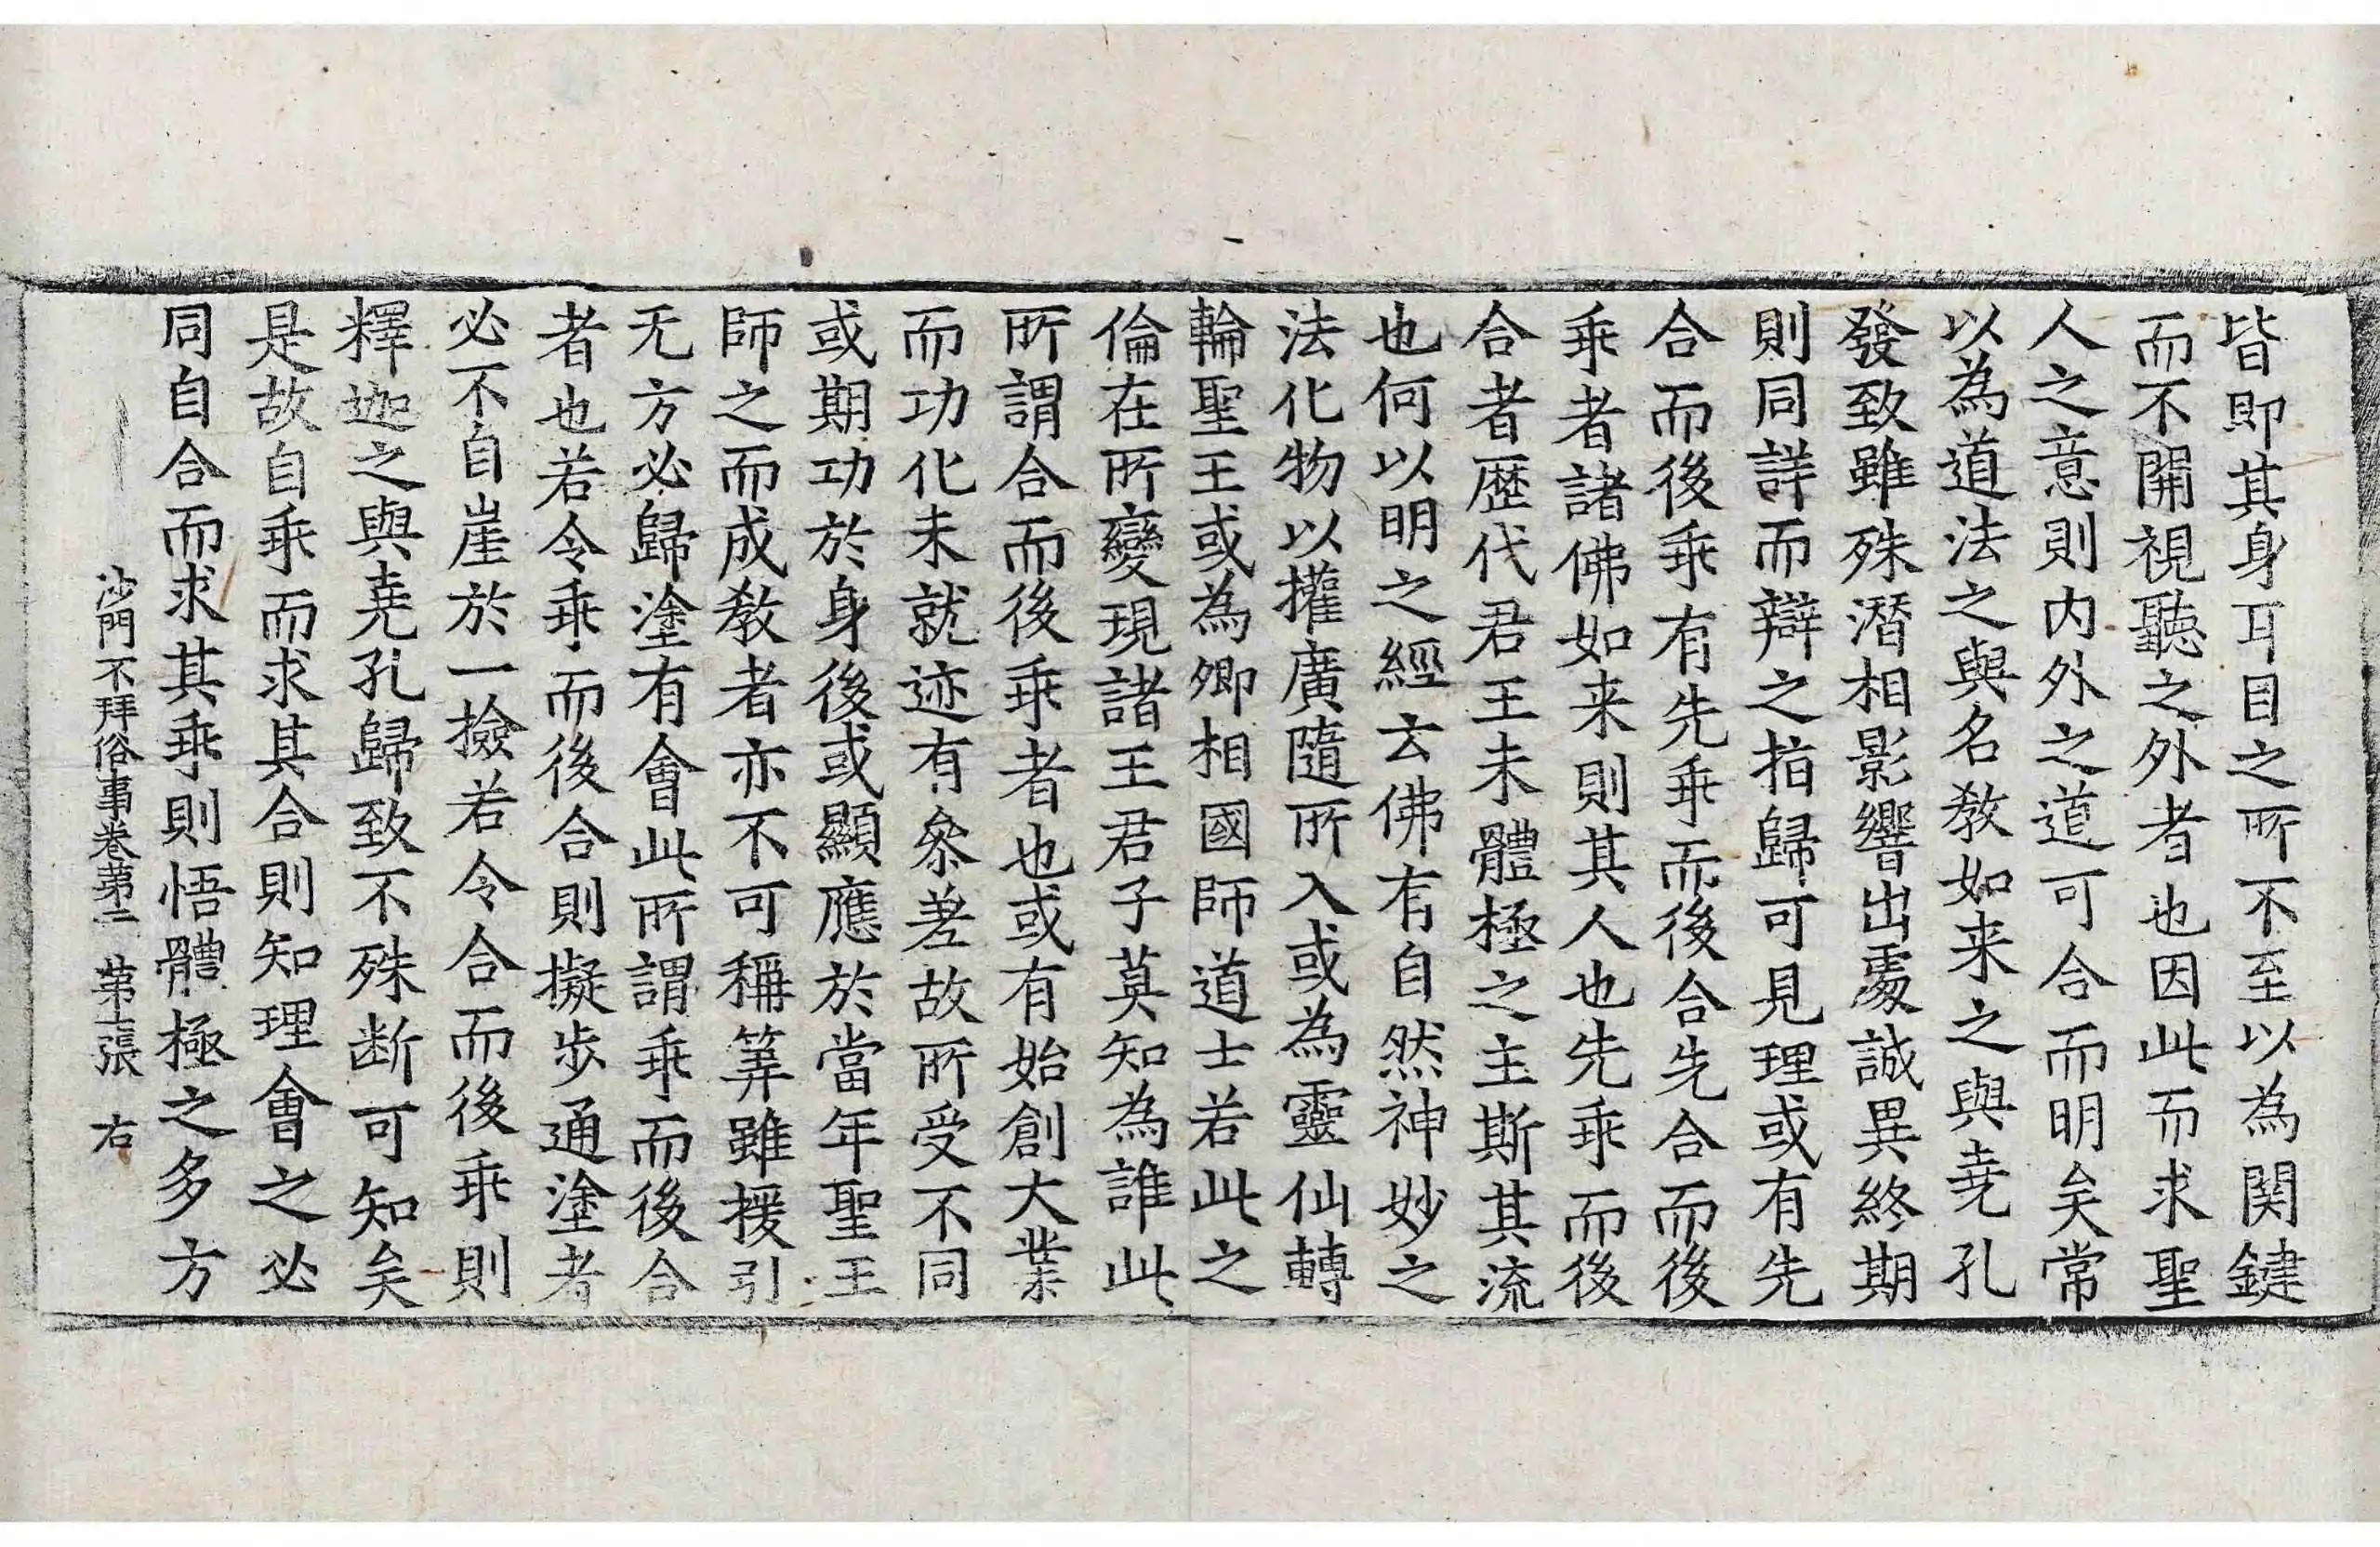 皆即其身耳目之所不至以為関鍵
而不開視聽之外者也因此而求聖
人之意則内外之道可合而明矣常
以為道法之與名教如来之與堯孔
發致雖殊潛相影響出處誠異終期
則同詳而辯之指歸可見理或有先
合而後乖有先乖而後合先合而後
乖者諸佛如来則其人也先乖而後
合者歷代君王未體極之主斯其流
也何以明之經云佛有自然神妙之
法化物以權廣隨所入或為靈仙轉
輪聖王或為卿相國師道士若此之
倫在所變現諸王君子莫知為誰此
所謂合而後乖者也或有始創大業
而功化未就迹有參差故所受不同
或期功於身後或顯應於當年聖王
師之而成教者亦不可稱筭雖援引
无方必歸塗有會此所謂乖而後合
者也若令乖而後合則擬步通塗者
必不自崖於一撿若令合而後乖則
釋迦之與堯孔歸致不殊断可知矣
是故自乖而求其合則知理會之必
同自合而求其乖則悟體極之多方
沙門不拜俗事卷第二 第十張 右